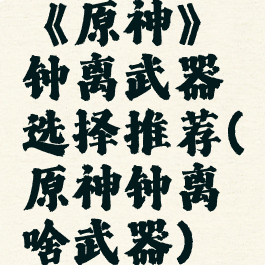 《原神》
钟离武器
选择推荐(
原神钟离
啥武器)